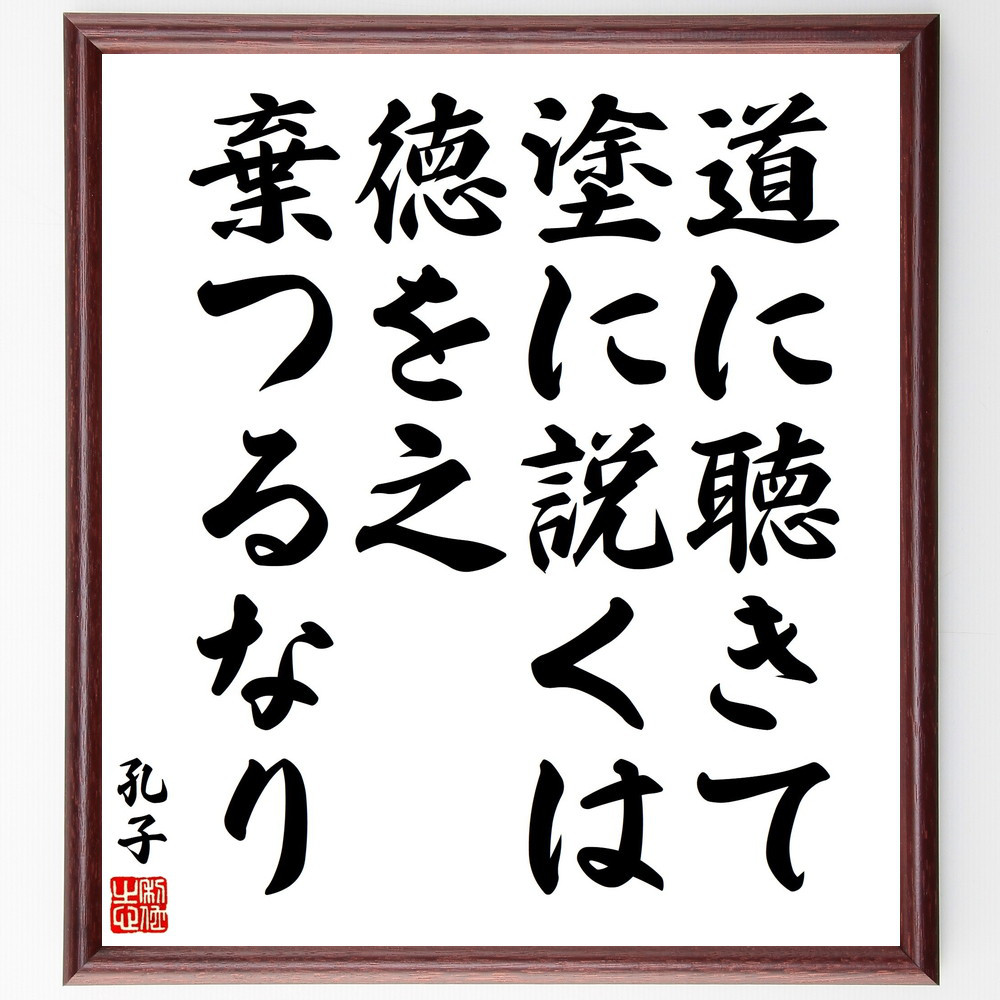 道に聴きて
塗に説くは
徳を之
棄つるなり
孔子